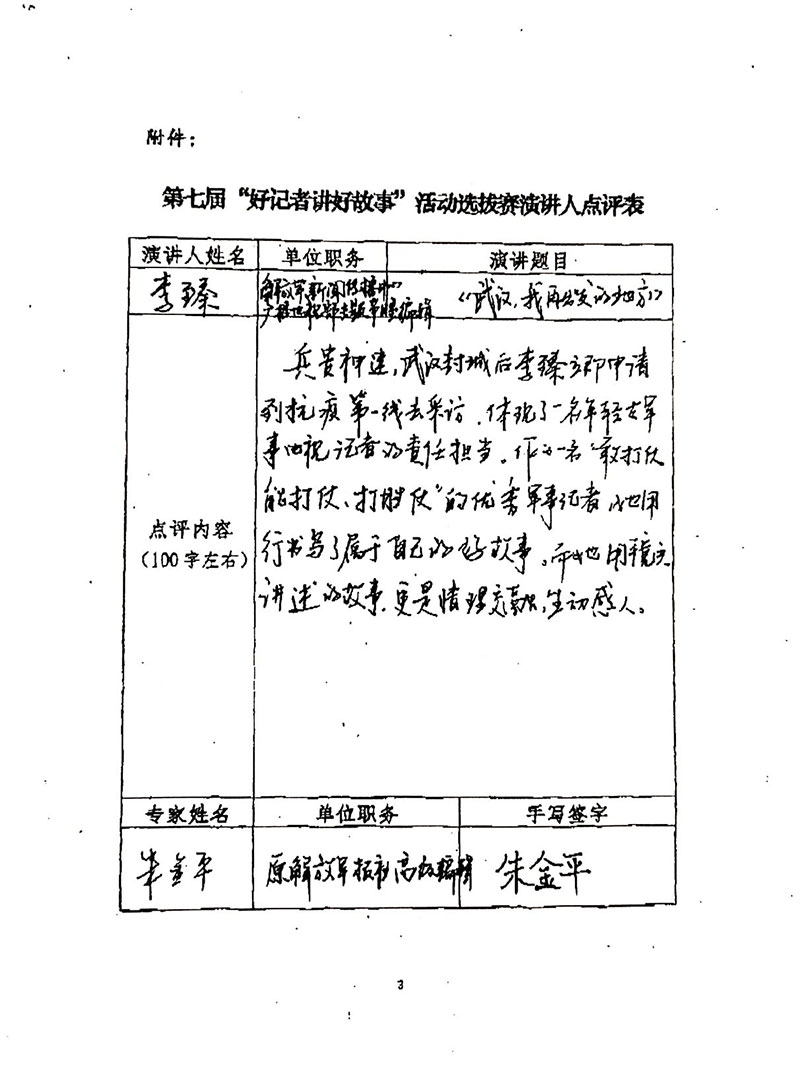 附件：
第七届“好记者讲好故事”活动选拔赛演讲人点评表
演讲人姓名 单位职务 演讲题目
李臻 解放军新闻传播中心 《武汉，我再出发的地方》
广播电视部专题 编辑
兵贵神速，武汉封城后李臻立即申请
到抗疫第一线去采访，体现了一名年轻女军
事电视记者的责任担当。作为一名“敢打仗
能打仗、打胜仗”的优秀军事记者，她用
行书写了属于自己的好故事。而她用镜头
讲述的故事，更是情理交融，生动感人。
点评内容
（100字左右）
专家姓名 单位职务 手写签字
朱金平 原解放军报社高级编辑 朱金平
3